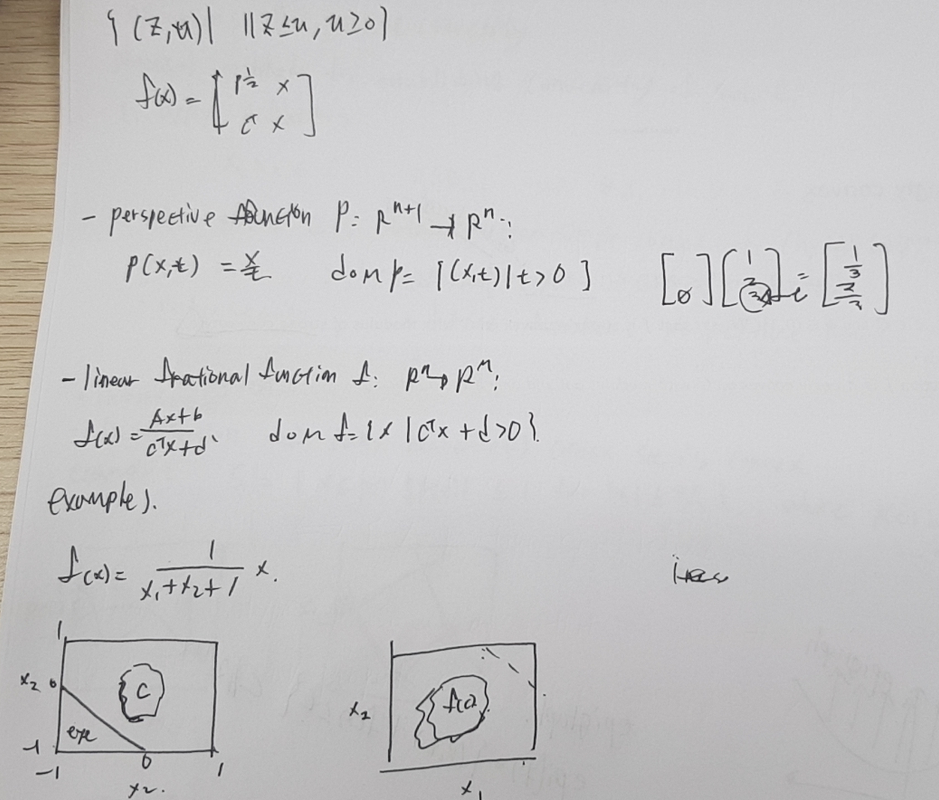 { (z,u) | ||z≤u, u≥0}
f(x) = [ P^{1/2} x
c^T x ]
- perspective function P: R^{n+1} → R^n:
P(x,t) = x/t dom p = {(x,t) | t>0}
- linear frational function f: R^n → R^m:
f(x) = (Ax+b)/(c^Tx+d) dom f = {x | c^Tx + d >0}.
examples.
f(x) = 1/(x_1+x_2+1) x.
1
x_2 0
C
-1
-1 0 1
x_2.
x_2
f(c)
x_1